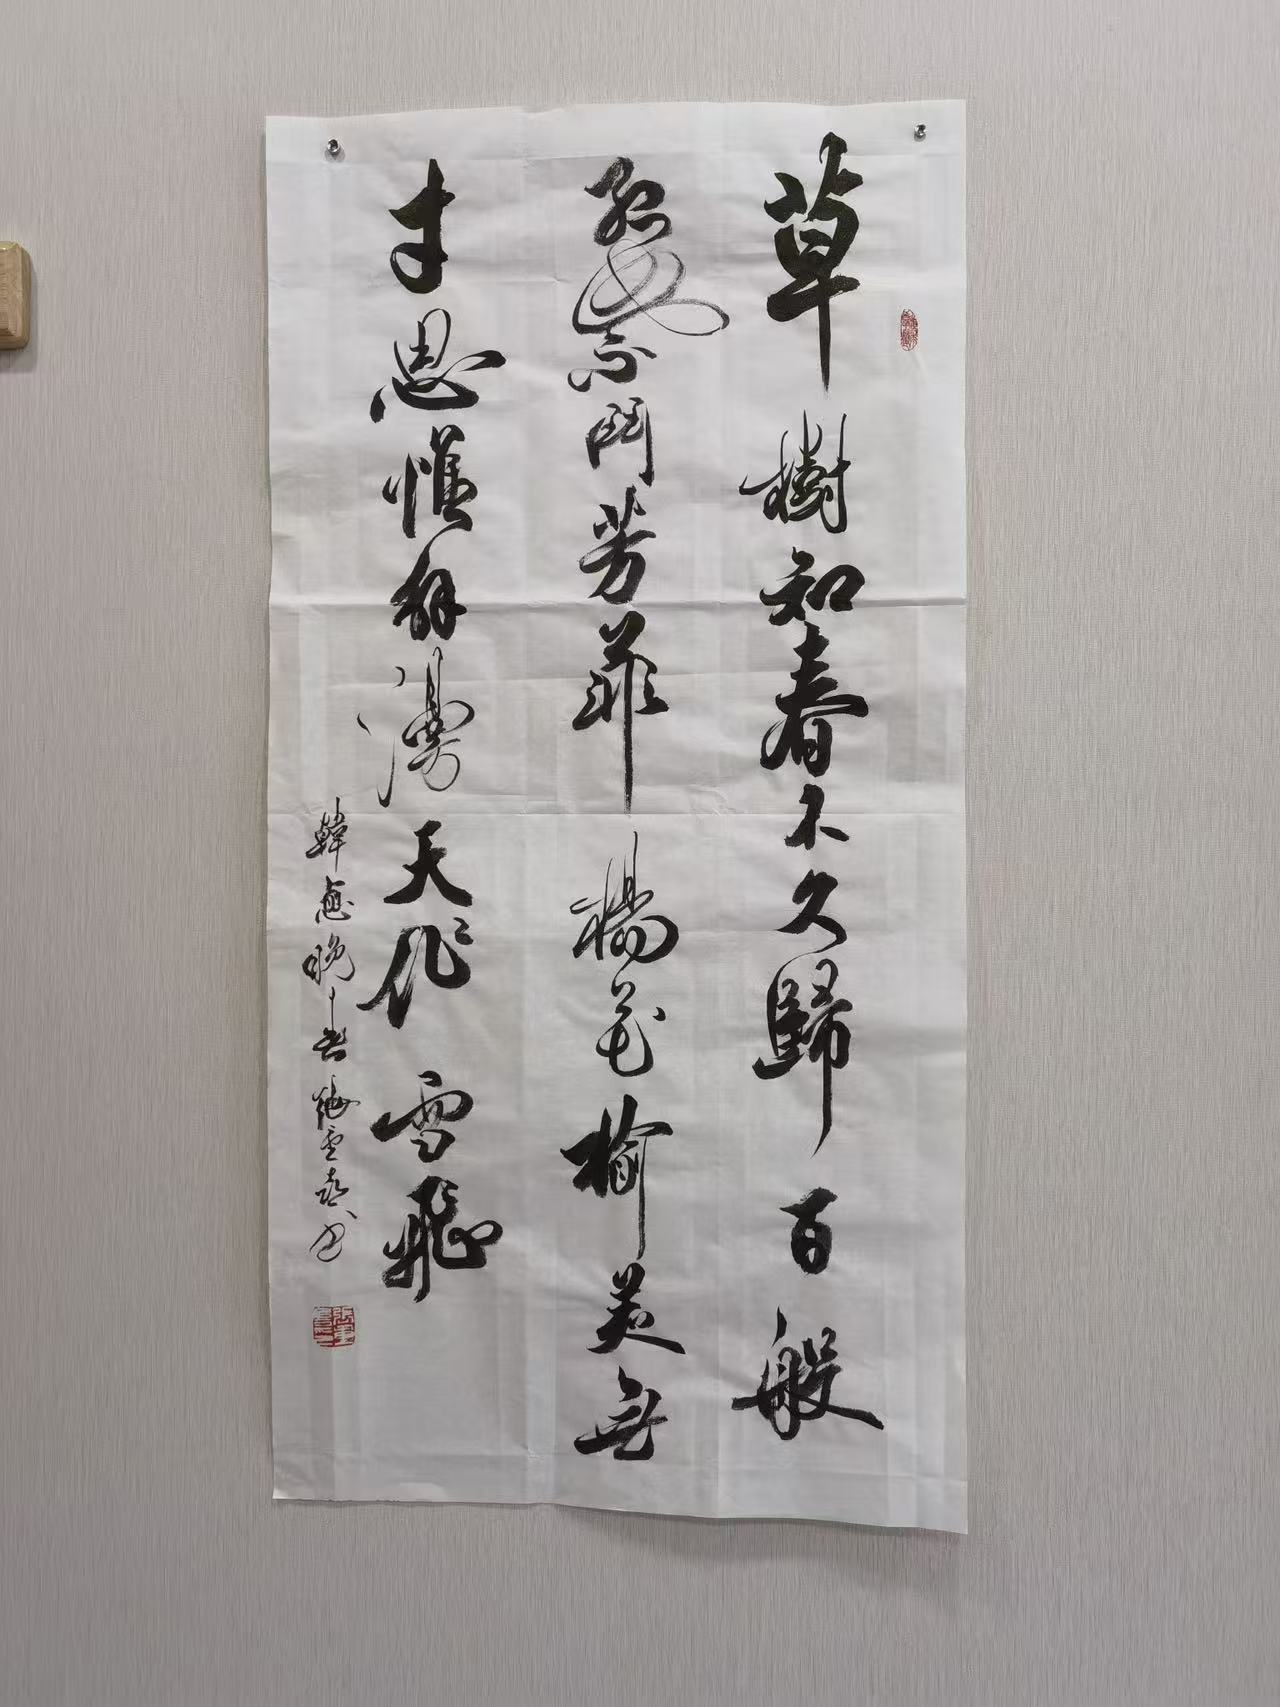 草樹知春不久歸百般
紅紫鬥芳菲楊花榆莢無
才思惟解漫天作雪飛
韓愈晚春